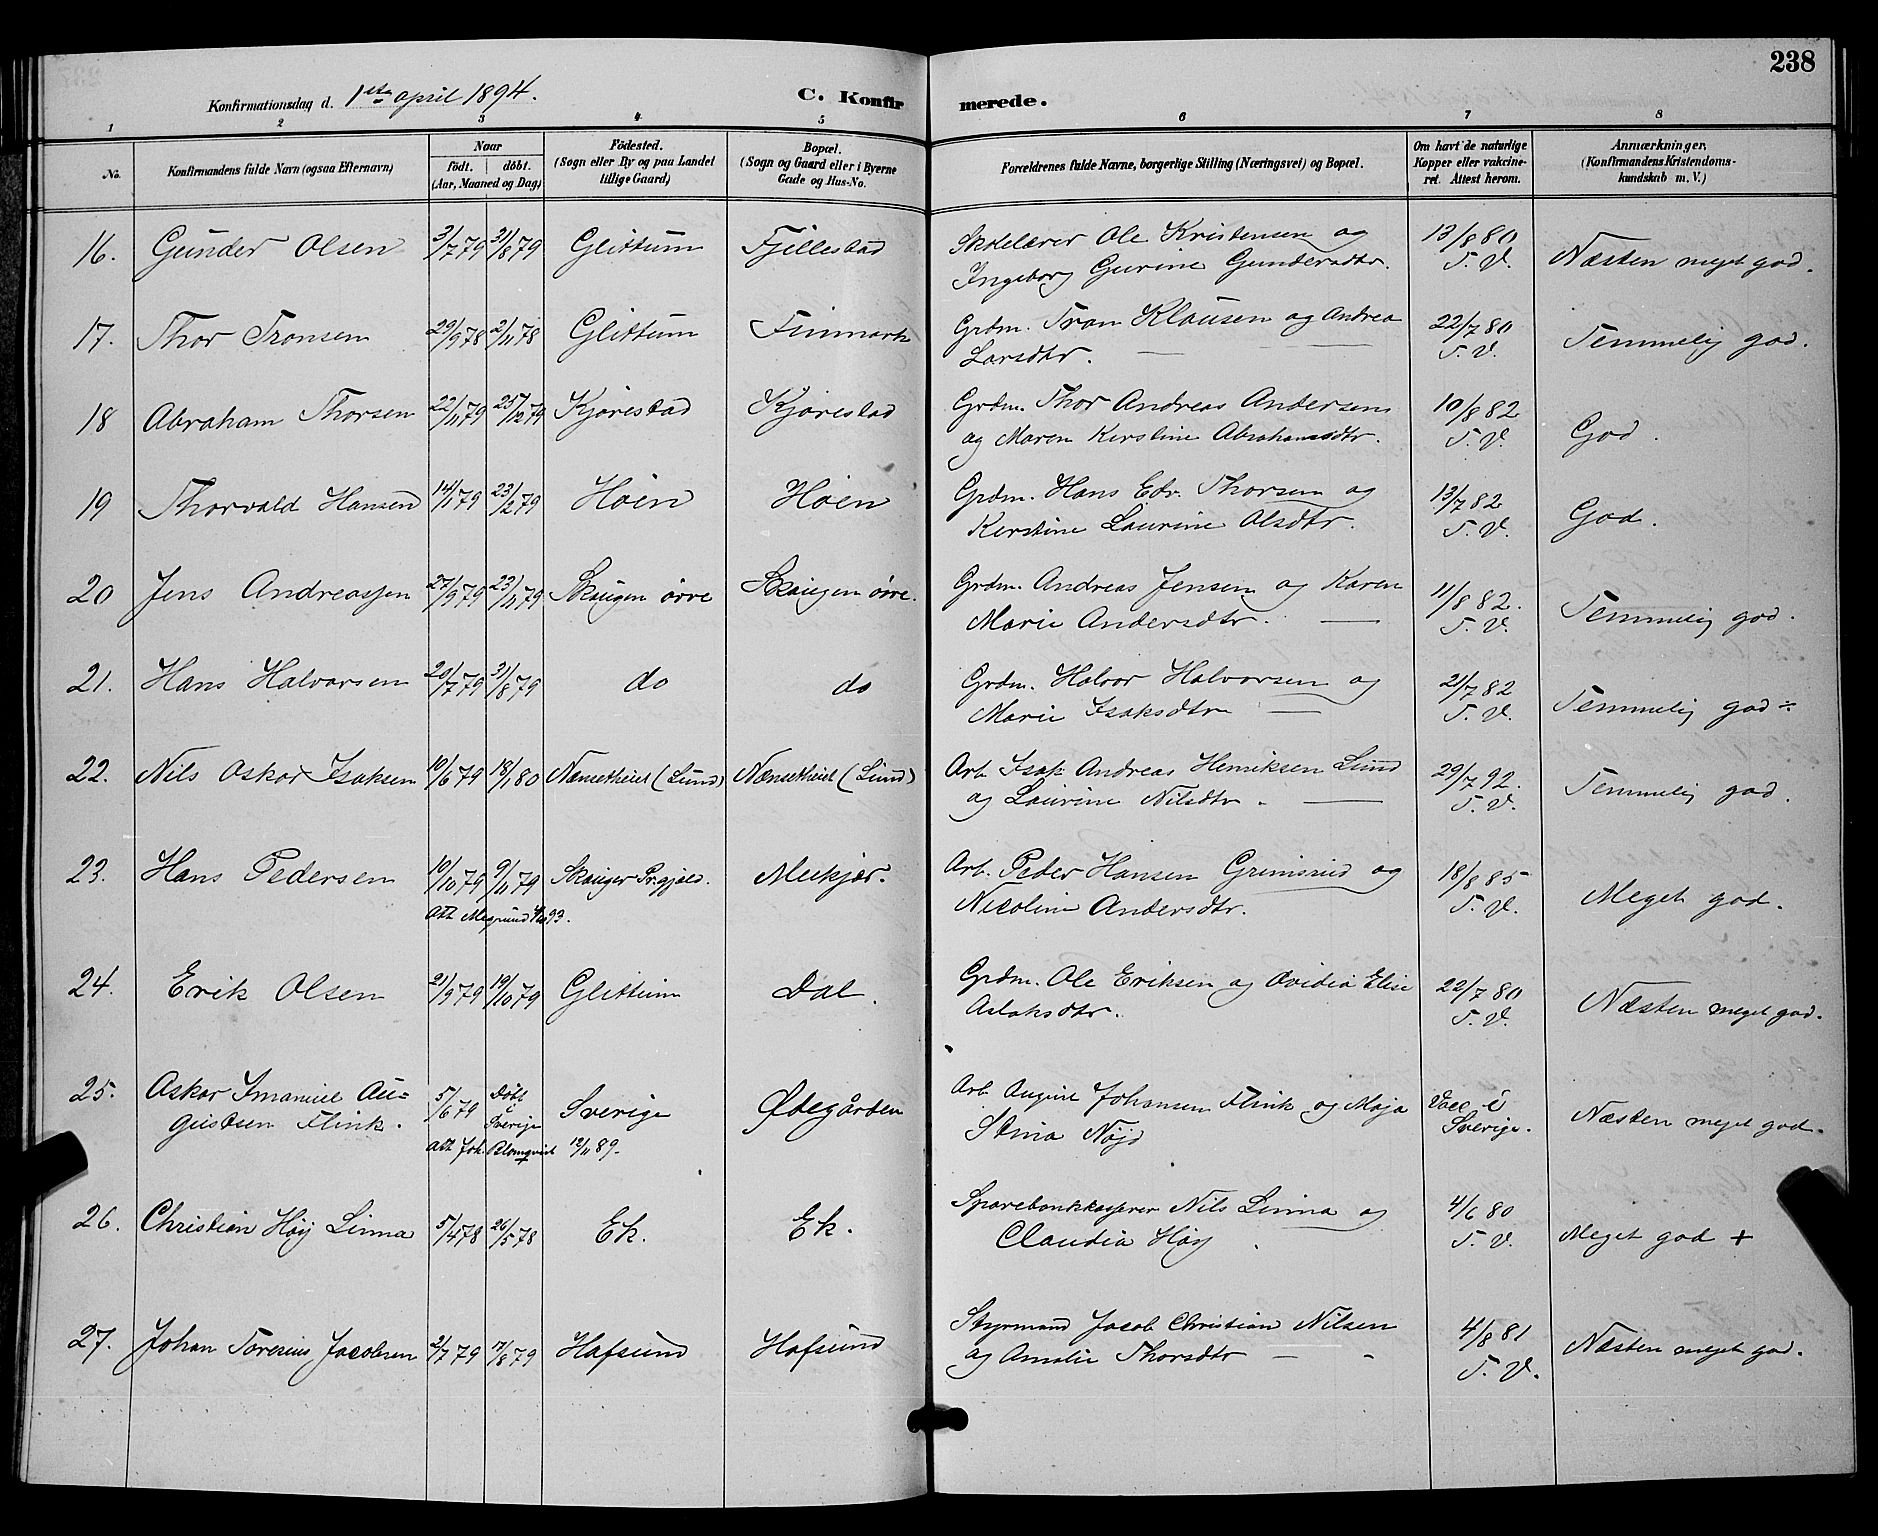 238
Konfirmationsdag d. 1ste april 1894.
C. Konfirmerede.
1 2 3 4 5 6 7 8
No. Konfirmandens fulde Navn (ogsaa Efternavn) Naar födt. döbt. (Aar, Maaned og Dag) Födested. (Sogn eller By og paa Landet tillige Gaard) Bopæl. (Sogn og Gaard eller i Byerne Gade og Hus-No. Forældrenes fulde Navne, borgerlige Stilling (Næringsvei) og Bopæl. Om havt de naturlige Kopper eller vakcineret. Attest herom. Anmærkninger. (Konfirmandens Kristendomskundskab m. V.)
16. Gunder Olsen 3/7 79 31/8 79 Glittum Fjellestad Skolelærer Ole Kristensen og 13/8 80 Næsten meget god.
Ingeborg Gurine Gundersdtr. T. V.
17. Thor Tronsen 29/9 78 2/11 78 Glittum Finmark Grdm. Tron Klausen og Andrea 22/7 80 Temmelig god.
Larsdtr. T. V.
18 Abraham Thorsen 22/11 79 25/12 79 Kjørestad Kjørestad Grdm. Thor Andreas Andersen 10/8 82 God.
og Maren Kerstine Abrahamsdtr. T. V.
19 Thorvald Hansen 14/1 79 23/2 79 Høien Høien Grdm. Hans Edv. Thorsen og 13/7 82 God.
Kerstine Laurine Olsdtr. T. V.
20 Jens Andreassen 27/9 79 23/11 79 Skaugen øvre Skaugen øvre. Grdm. Andreas Jensen og Karen 11/8 82. Temmelig god.
Marie Andersdtr. T. V.
21. Hans Halvorsen 20/7 79 31/8 79 do do Grdm. Halvor Halvorsen og 21/7 82 Temmelig god ÷
Marie Isaksdtr T. V.
22. Nils Oskar Isaksen 10/6 79 18/1 80 (Lund) (Lund) Arb. Isak Andreas Henriksen Lund 29/7 92. Temmelig god.
og Laurine Nilsdtr. T. V.
23. Hans Pedersen 10/10 79 9/11 79 Skauger Pr.gjæld. Arb. Peder Hansen Grimsrud og 18/8 85 Meget god.
Att. 93. Nicoline Andersdtr. T. V.
24. Erik Olsen 21/9 79 19/10 79 Glittum Dal. Grdm. Ole Eriksen og Ovidia Elise 22/7 80 Næsten meget god.
Aslaksdtr. T. V.
25. Oskar Imanuel Au= 5/6 79 Døbt i Sverige Sverige Ødegården Arb August Johansen Flink og Maja Vacc i Næsten meget god.
gustsen Flink. Att Joh. Blomqvist 12/11 89. Stina Nøjd Sverige.
26. Christian Høy Linna 5/4 78 26/5 78 Ek. Ek. Sparebankkasserer Nils Linna og 4/6 80 Meget god +
Claudia Høy T. V.
27. Johan Torerius Jacobsen 2/7 79 17/8 79 Hafsund Hafsund Styrmand Jacob Christian Nilsen 4/8 81 Næsten meget god.
og Amalie Thorsdtr T. V.